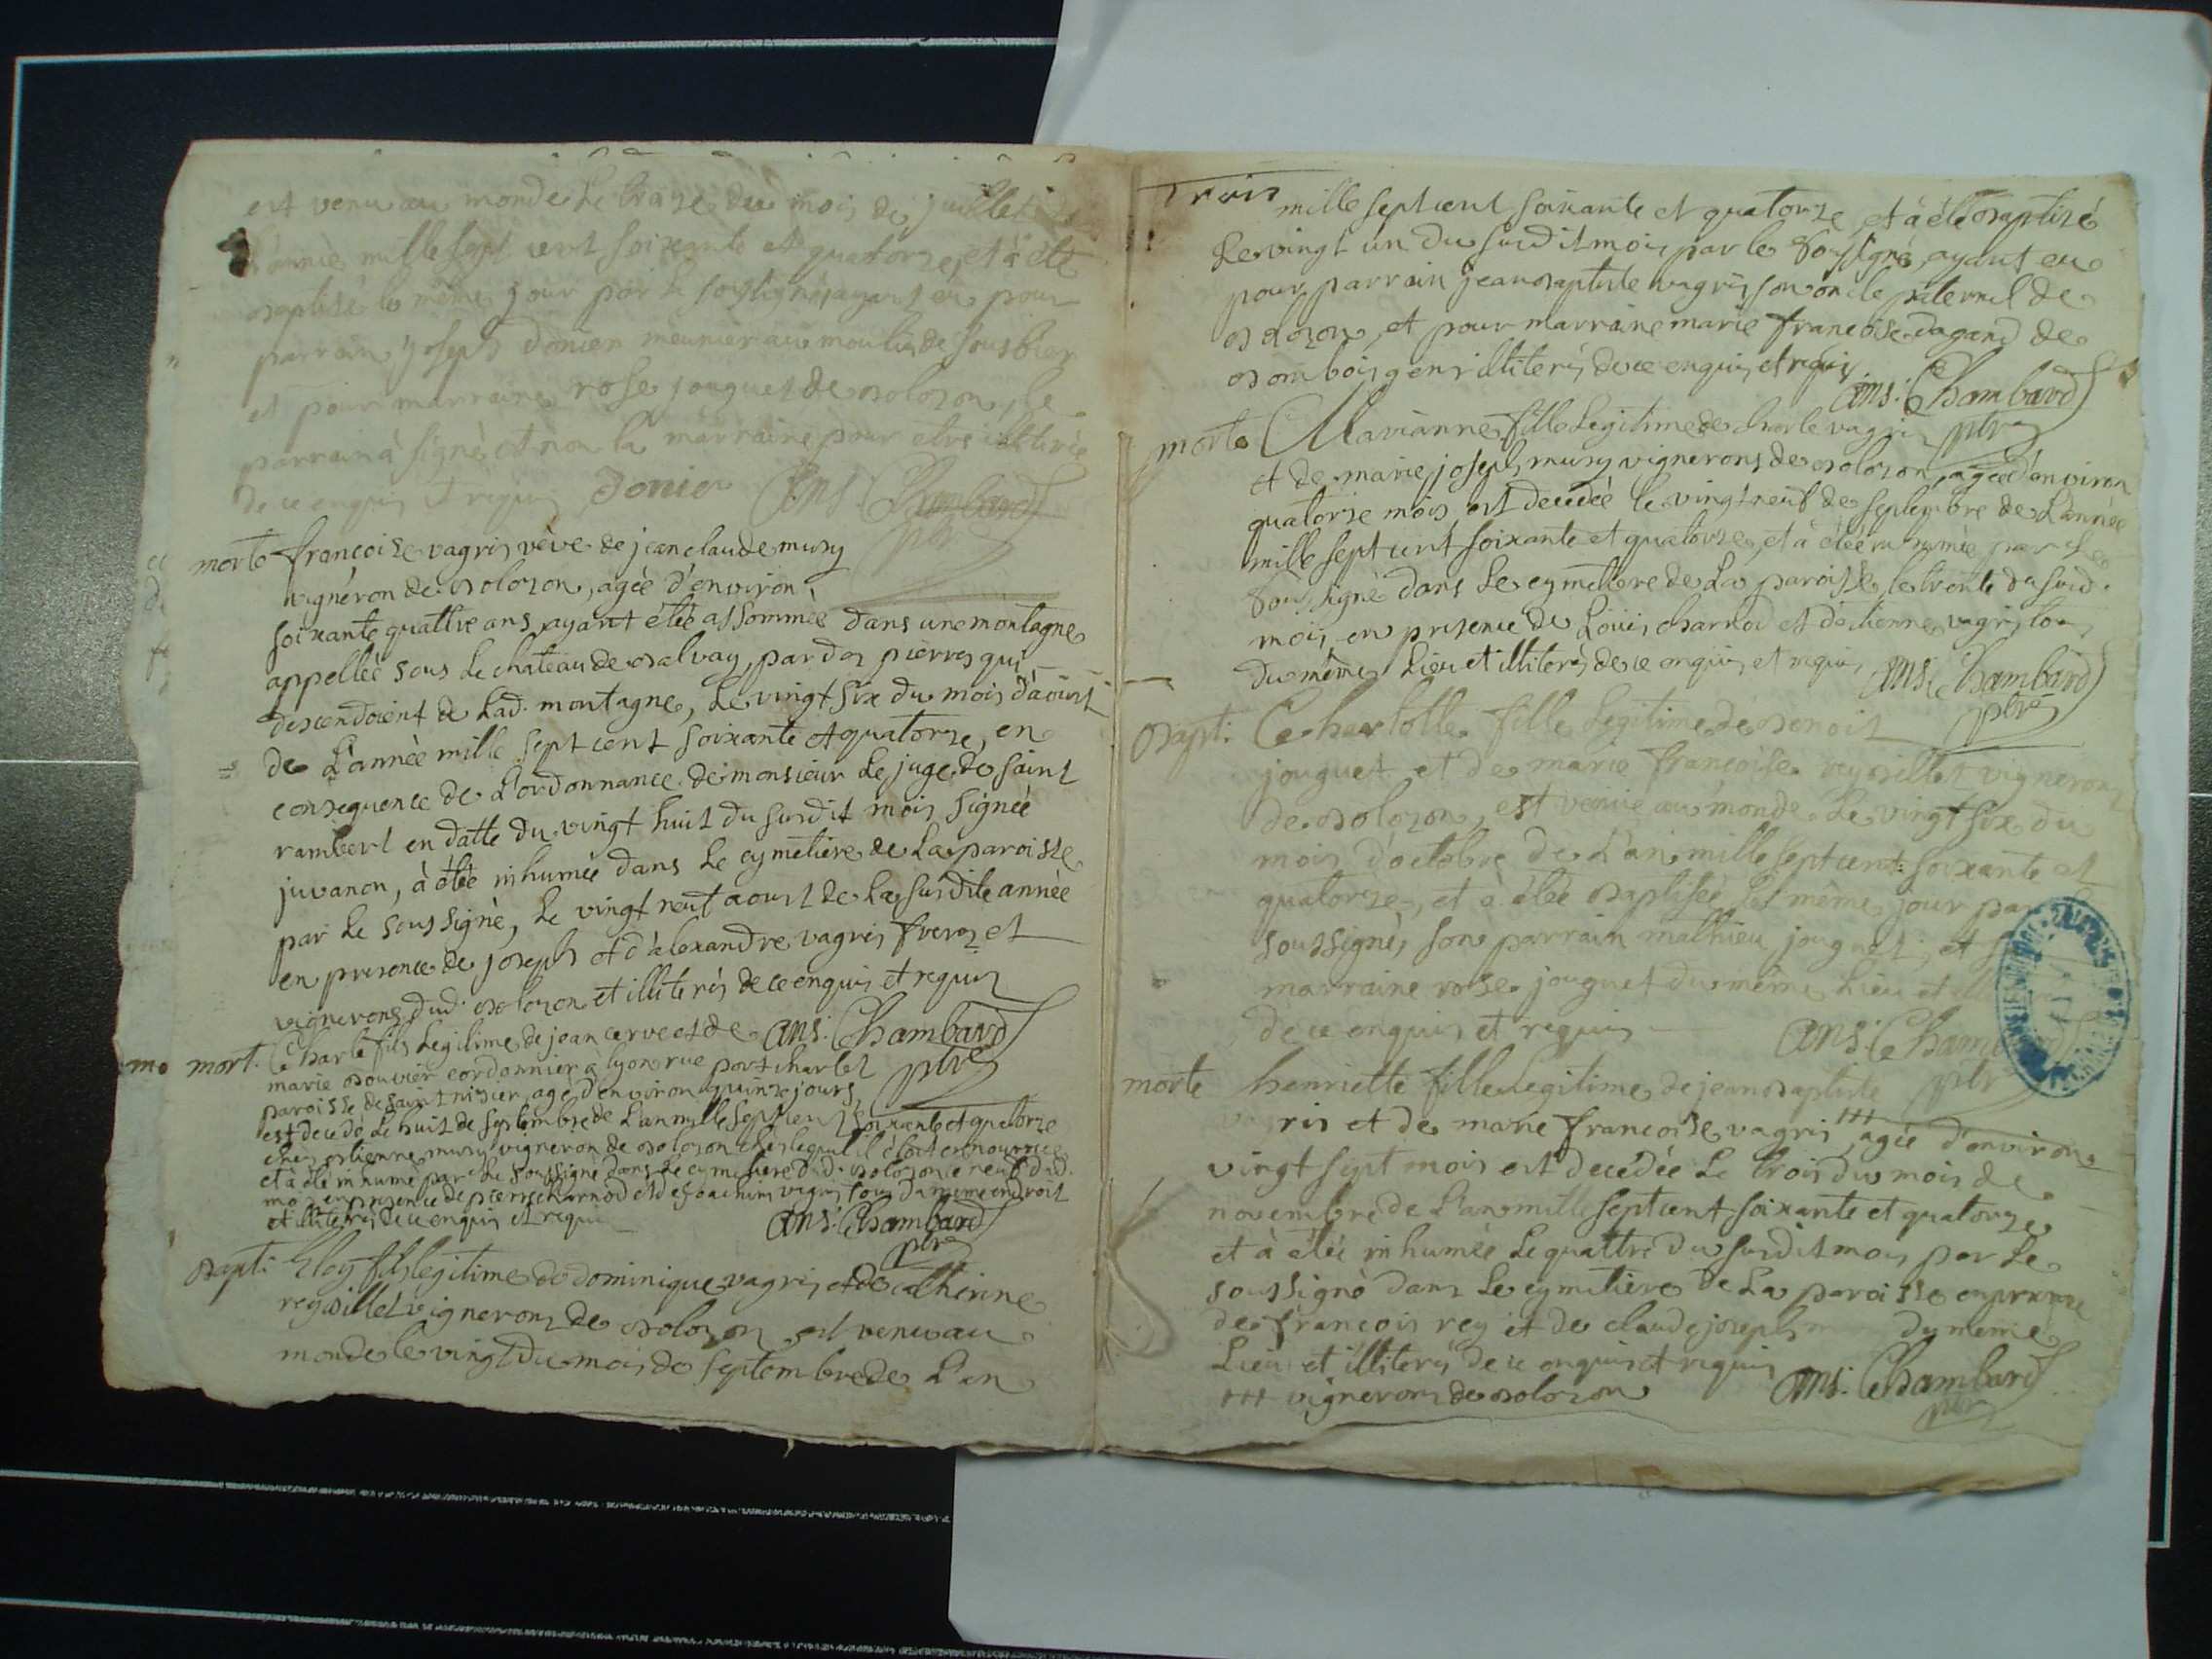 est venu au monde le treize du mois de juillet de
l'année mille sept cent soixante et quatorze, et à été
baptisé le même jour par le soussigné, ayant eu pour
parrain joseph donier meunier au moulin de sousbier
et pour marraine rose jouguet de bolozon, le
parrain à signé et non la marraine pour etre illitérée
de ce enquis et requis Donier Ans. Chambard
ptre
morte françoise vagris vève de jean claude muny
vignéron de bolozon, agée d'environ
soixante quattre ans ayant étée assommée dans une montagne
appellée sous le chateau de balvay, par des pierres qui
descendoient de lad. montagne, le vingt six du mois d'aoust
de l'année mille sept cent soixante et quatorze, en
consequence de l'ordonnance de monsieur le juge de saint
rambert en datte du vingt huit du susdit mois signée
juvanon, à étée inhumée dans le cymetiere de la paroisse
par le soussigné, le vingt neuf aoust de la susdite année
en presence de joseph et d'alexandre vagris freres et
vignerons dud. bolozon et illiterés de ce enquis et requis
mort. Charle fils legitime de jean cerve et de Ans. Chambard
marie bouvier cordonnier à lyon rue port charlet ptre
paroisse de saint nisier, agé d'environ quinze jours
est decedé le huit de septembre de l'an mille sept cent soixante et quatorze
chez etienne muny vigneron de bolozon chez lequel il étoit en nourrice
et à été inhumé par le soussigné dans le cymetiere dud. bolozon le neuf dud.
mois en presence de pierre charnod et de joachim vagris tous du meme endroit
et illiterés de ce enquis et requis Ans. Chambard
ptre
bapt. Eloy fils legitime de dominique vagris et de catherine
reybillet vignerons de bolozon est venu au
monde le vingt du mois de septembre de l'an
Trois
mille sept cent soixante et quatorze, et à été baptisé
le vingt un du susdit mois par le soussigné, ayant eu
pour parrain jean baptiste vagris son oncle paternel de
bolozon, et pour marraine marie françoise dagand de
bombois gens illiterés de ce enquis et requis
Ans. Chambard
morte Marianne fille legitime de charle vagris ptre
et de marie joseph muny vignerons de bolozon, agée d'environ
quatorze mois est decedée le vingt neuf de septembre de l'année
mille sept cent soixante et quatorze, et à étée inhumée par le
soussigné dans le cymetiere de la paroisse le trente du susd.
mois, en presence de Louis charnod et d'etienne vagris tous
du même lieu et illiterés de ce enquis et requis Ans. Chambard
ptre
bapt. Charlotte fille legitime de benoit
jouguet et de marie françoise reybillet vignerons
de bolozon, est venüe au monde le vingt six du
mois d'octobre de l'an mille sept cent soixante et
quatorze, et à étée baptisée le même jour par
soussigné, son parrain mathieu jouguet, et
marraine rose jouguet du même lieu et
de ce enquis et requis Ans. Chambard
morte henriette fille legitime de jean baptiste ptre
vagris et de marie françoise vagris +++ agée d'environ
vingt sept mois est decédée le trois du mois de
novembre de l'an mille sept cent soixante et quatorze
et à étée inhumée le quattre du susdit mois par le
soussigné dans le cymetiere de la paroisse en presence
de françois rey et de claude joseph du meme
lieu et illiterés de ce enquis et requis
+++ vignerons de bolozon Ans. Chambard
ptre